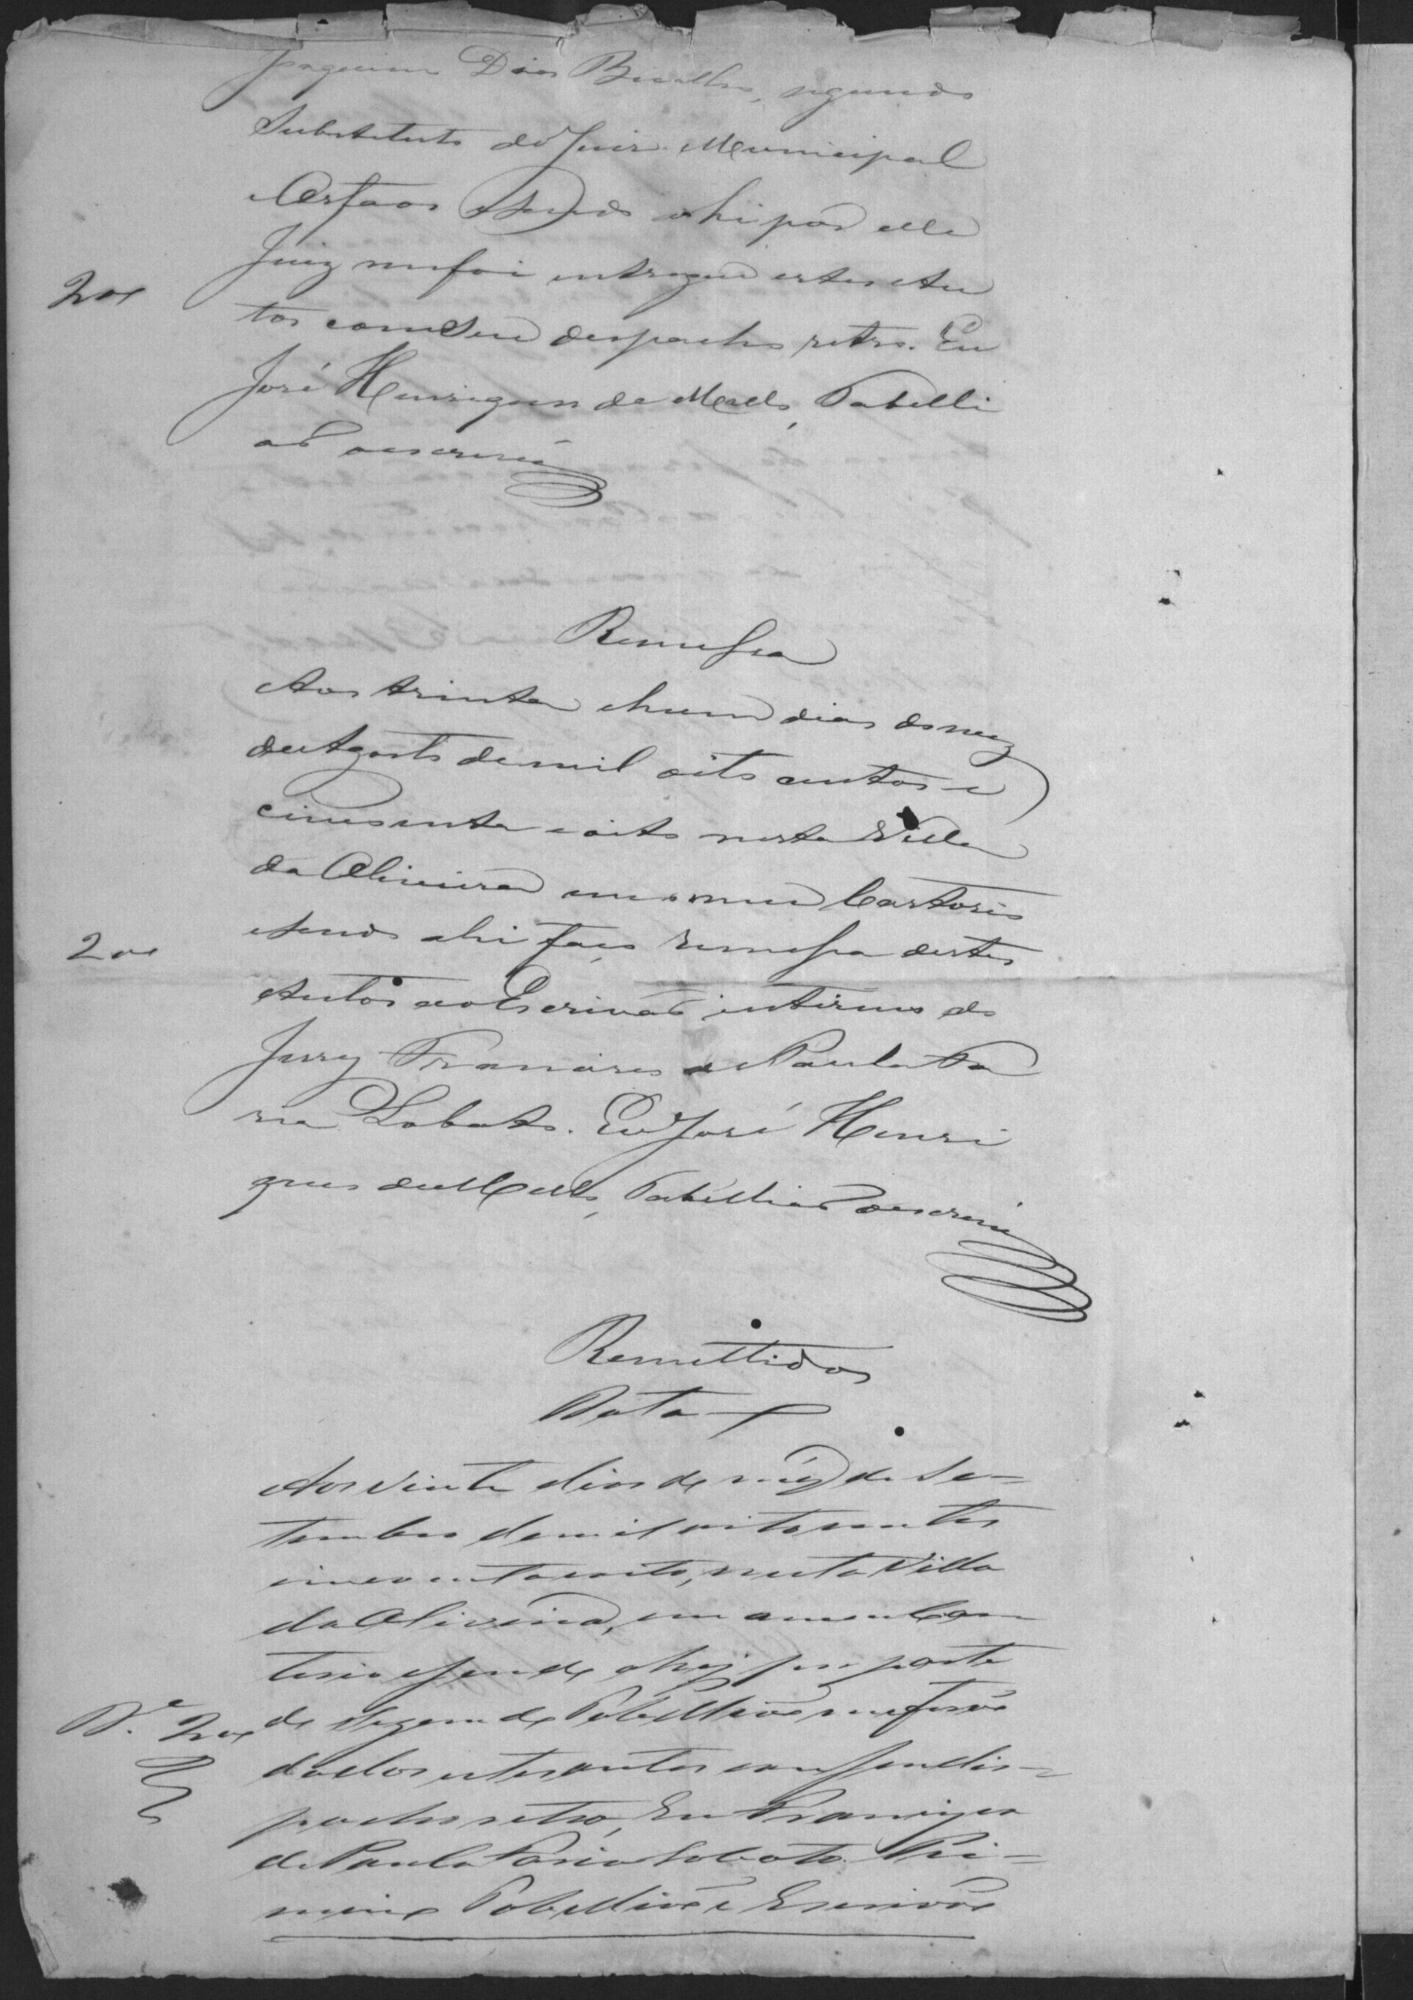 Joaquim Dias Bicalho, segundo
Substituto do Juiz Municipal
e Orfaos e sendo ahi por elle
Juiz me foi entregue estes Au
tos com seu despacho retro. Eu
200
José Henriques de Mello, Tabelli
aõ o escreví
Remessa
Aos trinta e hum dias do mez
de Agosto de mil oito centos e
cincoenta e oito nesta Villa
da Oliveira em o meu Cartorio
e sendo ahi faço remessa destes
200
Autos ao Escrivaõ interino do
Jury Francisco de Paula Fa
ria Lobato. Eu José Henri
ques de Mello, Tabelliaõ o escreví
Remettidos
Data
Aos vinte dias do mez de Se-
tembro de mil oito centos
cincoenta e oito, nesta Villa
da Oliveira, em o meu Car
torio e sendo ahy por parte
200 do segundo Tabelliaõ me foraõ
dados estes autos com seu des-
pacho retro, Eu Francisco
de Paula Faria Lobato Pri-
meiro Tabelliaõ e Escrivaõ